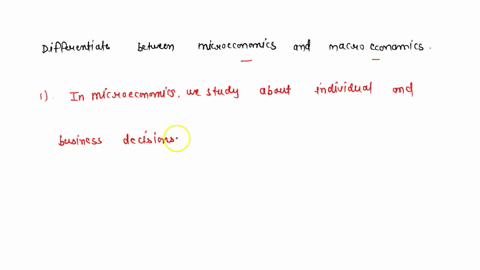 Differentiate between microeconomics and macroeconomics.
1). In microeconomics, we study about individual and
business decisions.